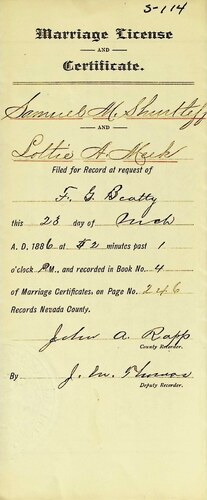 S-114
Marriage License
AND
Certificate.
Samuel M. Shurtleff
AND
Lottie A. Mack
Filed for Record at request of
F. G. Beatty
this 28 day of Mch
A. D. 1886 at 52 minutes past 1
o'clock P.M., and recorded in Book No. 4
of Marriage Certificates, on Page No. 246
Records Nevada County.
John A. Rapp
County Recorder.
By J. M.
Deputy Recorder.